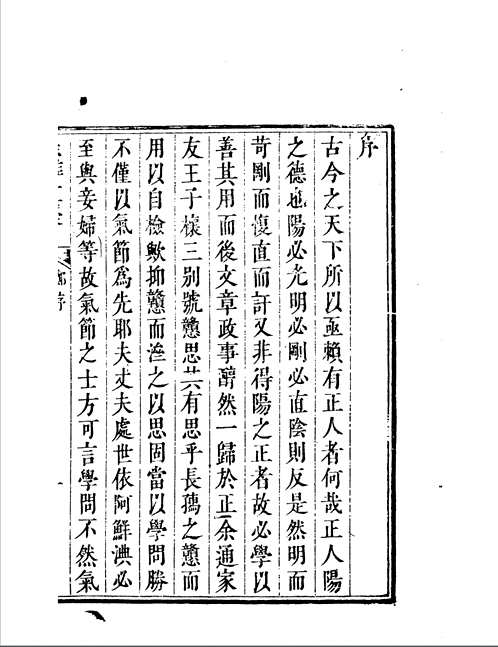 序
古今之天下所以亟賴有正人者何哉正人陽
之德也陽必光明必剛必直陰則反是然明而
苛剛而愎直而訐又非得陽之正者故必學以
善其用而後文章政事辭然一歸於正余通家
友王子檁三别號戇思其有思乎長孺之戇而
用以自檢歟抑戇而澹之以思固當以學問勝
不僅以氣節為先耶夫丈夫處世依阿鮮淟必
至與妾婦等故氣節之士方可言學問不然氣
序